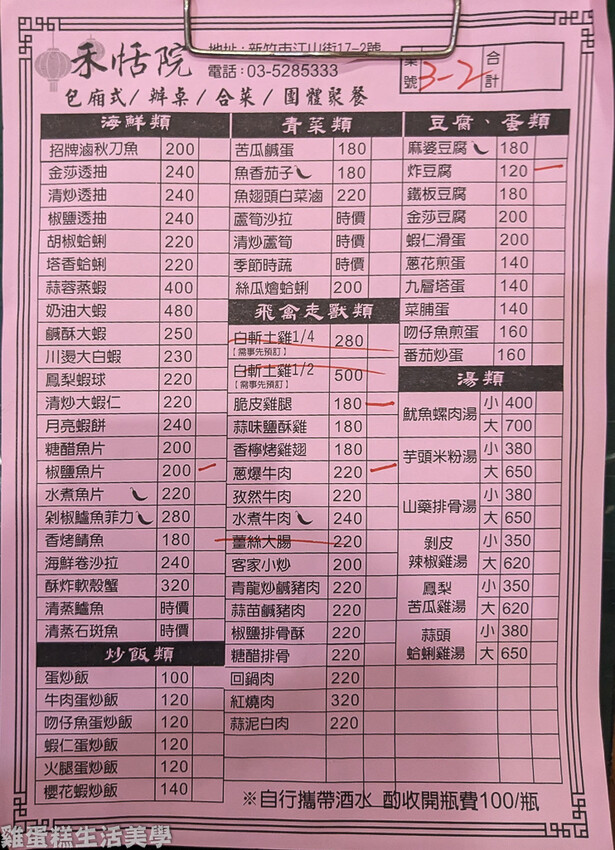 禾恬院
地址:新竹市江山街17-2號
電話:03-5285333
桌號 3-2 合計
包廂式/辦桌/合菜/團體聚餐
海鮮類
招牌滷秋刀魚 200
金莎透抽 240
清炒透抽 240
椒鹽透抽 240
胡椒蛤蜊 220
塔香蛤蜊 220
蒜蓉蒸蝦 400
奶油大蝦 480
鹹酥大蝦 250
川燙大白蝦 230
鳳梨蝦球 220
清炒大蝦仁 220
月亮蝦餅 240
糖醋魚片 200
椒鹽魚片 200
水煮魚片 220
剁椒鱸魚菲力 280
香烤鯖魚 180
海鮮卷沙拉 240
酥炸軟殼蟹 320
清蒸鱸魚 時價
清蒸石斑魚 時價
炒飯類
蛋炒飯 100
牛肉蛋炒飯 120
吻仔魚蛋炒飯 120
蝦仁蛋炒飯 120
火腿蛋炒飯 120
櫻花蝦炒飯 140
青菜類
苦瓜鹹蛋 180
魚香茄子 180
魚翅頭白菜滷 220
蘆筍沙拉 時價
清炒蘆筍 時價
季節時蔬 時價
絲瓜燴蛤蜊 200
飛禽走獸類
白斬土雞1/4 280
【需事先預訂】
白斬土雞1/2 500
【需事先預訂】
脆皮雞腿 180
蒜味鹽酥雞 180
香檸烤雞翅 180
蔥爆牛肉 220
孜然牛肉 220
水煮牛肉 240
薑絲大腸 220
客家小炒 200
青龍炒鹹豬肉 220
蒜苗鹹豬肉 220
椒鹽排骨酥 220
糖醋排骨 220
回鍋肉 220
紅燒肉 320
蒜泥白肉 220
豆腐、蛋類
麻婆豆腐 180
炸豆腐 120
鐵板豆腐 180
金莎豆腐 200
蝦仁滑蛋 200
蔥花煎蛋 140
九層塔蛋 140
菜脯蛋 140
吻仔魚煎蛋 160
番茄炒蛋 160
湯類
魷魚螺肉湯 小 400
大 700
芋頭米粉湯 小 380
大 650
山藥排骨湯 小 380
大 650
剝皮辣椒雞湯 小 350
大 620
鳳梨苦瓜雞湯 小 350
大 620
蒜頭蛤蜊雞湯 小 380
大 650
※自行攜帶酒水 酌收開瓶費100/瓶
雞蛋糕生活美學